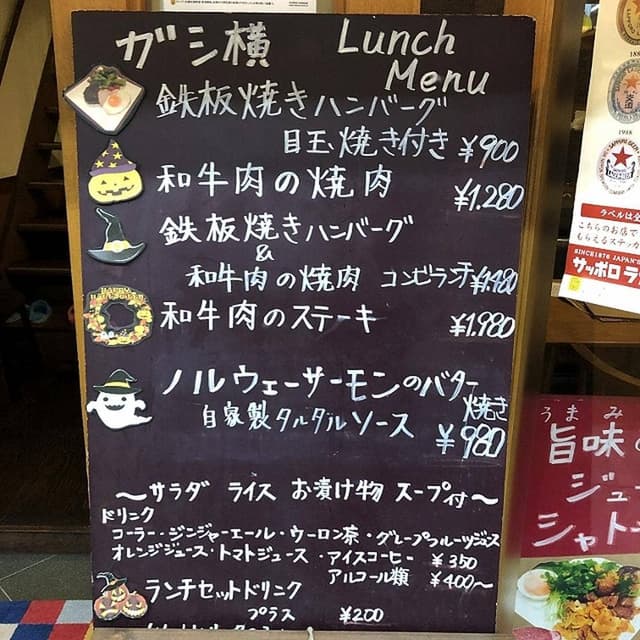 ガシ横 Lunch Menu
鉄板焼きハンバーグ
目玉焼き付き ¥900
和牛肉の焼肉 ¥1.280
鉄板焼きハンバーグ
&
和牛肉の焼肉 コンビランチ ¥1.480
和牛肉のステーキ ¥1.980
ノルウェーサーモンのバター焼き
自家製タルタルソース ¥980
〜サラダ ライス お漬け物 スープ付〜
ドリンク
コーラー・ジンジャーエール・ウーロン茶・グレープフルーツジュース
オレンジジュース・トマトジュース・アイスコーヒー ¥350
アルコール類 ¥400〜
ランチセットドリンク
プラス ¥200
1918
ラベルは全
こちらのお店で
もらえるスナッ
SINCE1876 JAPAN'S
サッポロラ
うまみ
旨味の
ジュー
シャト